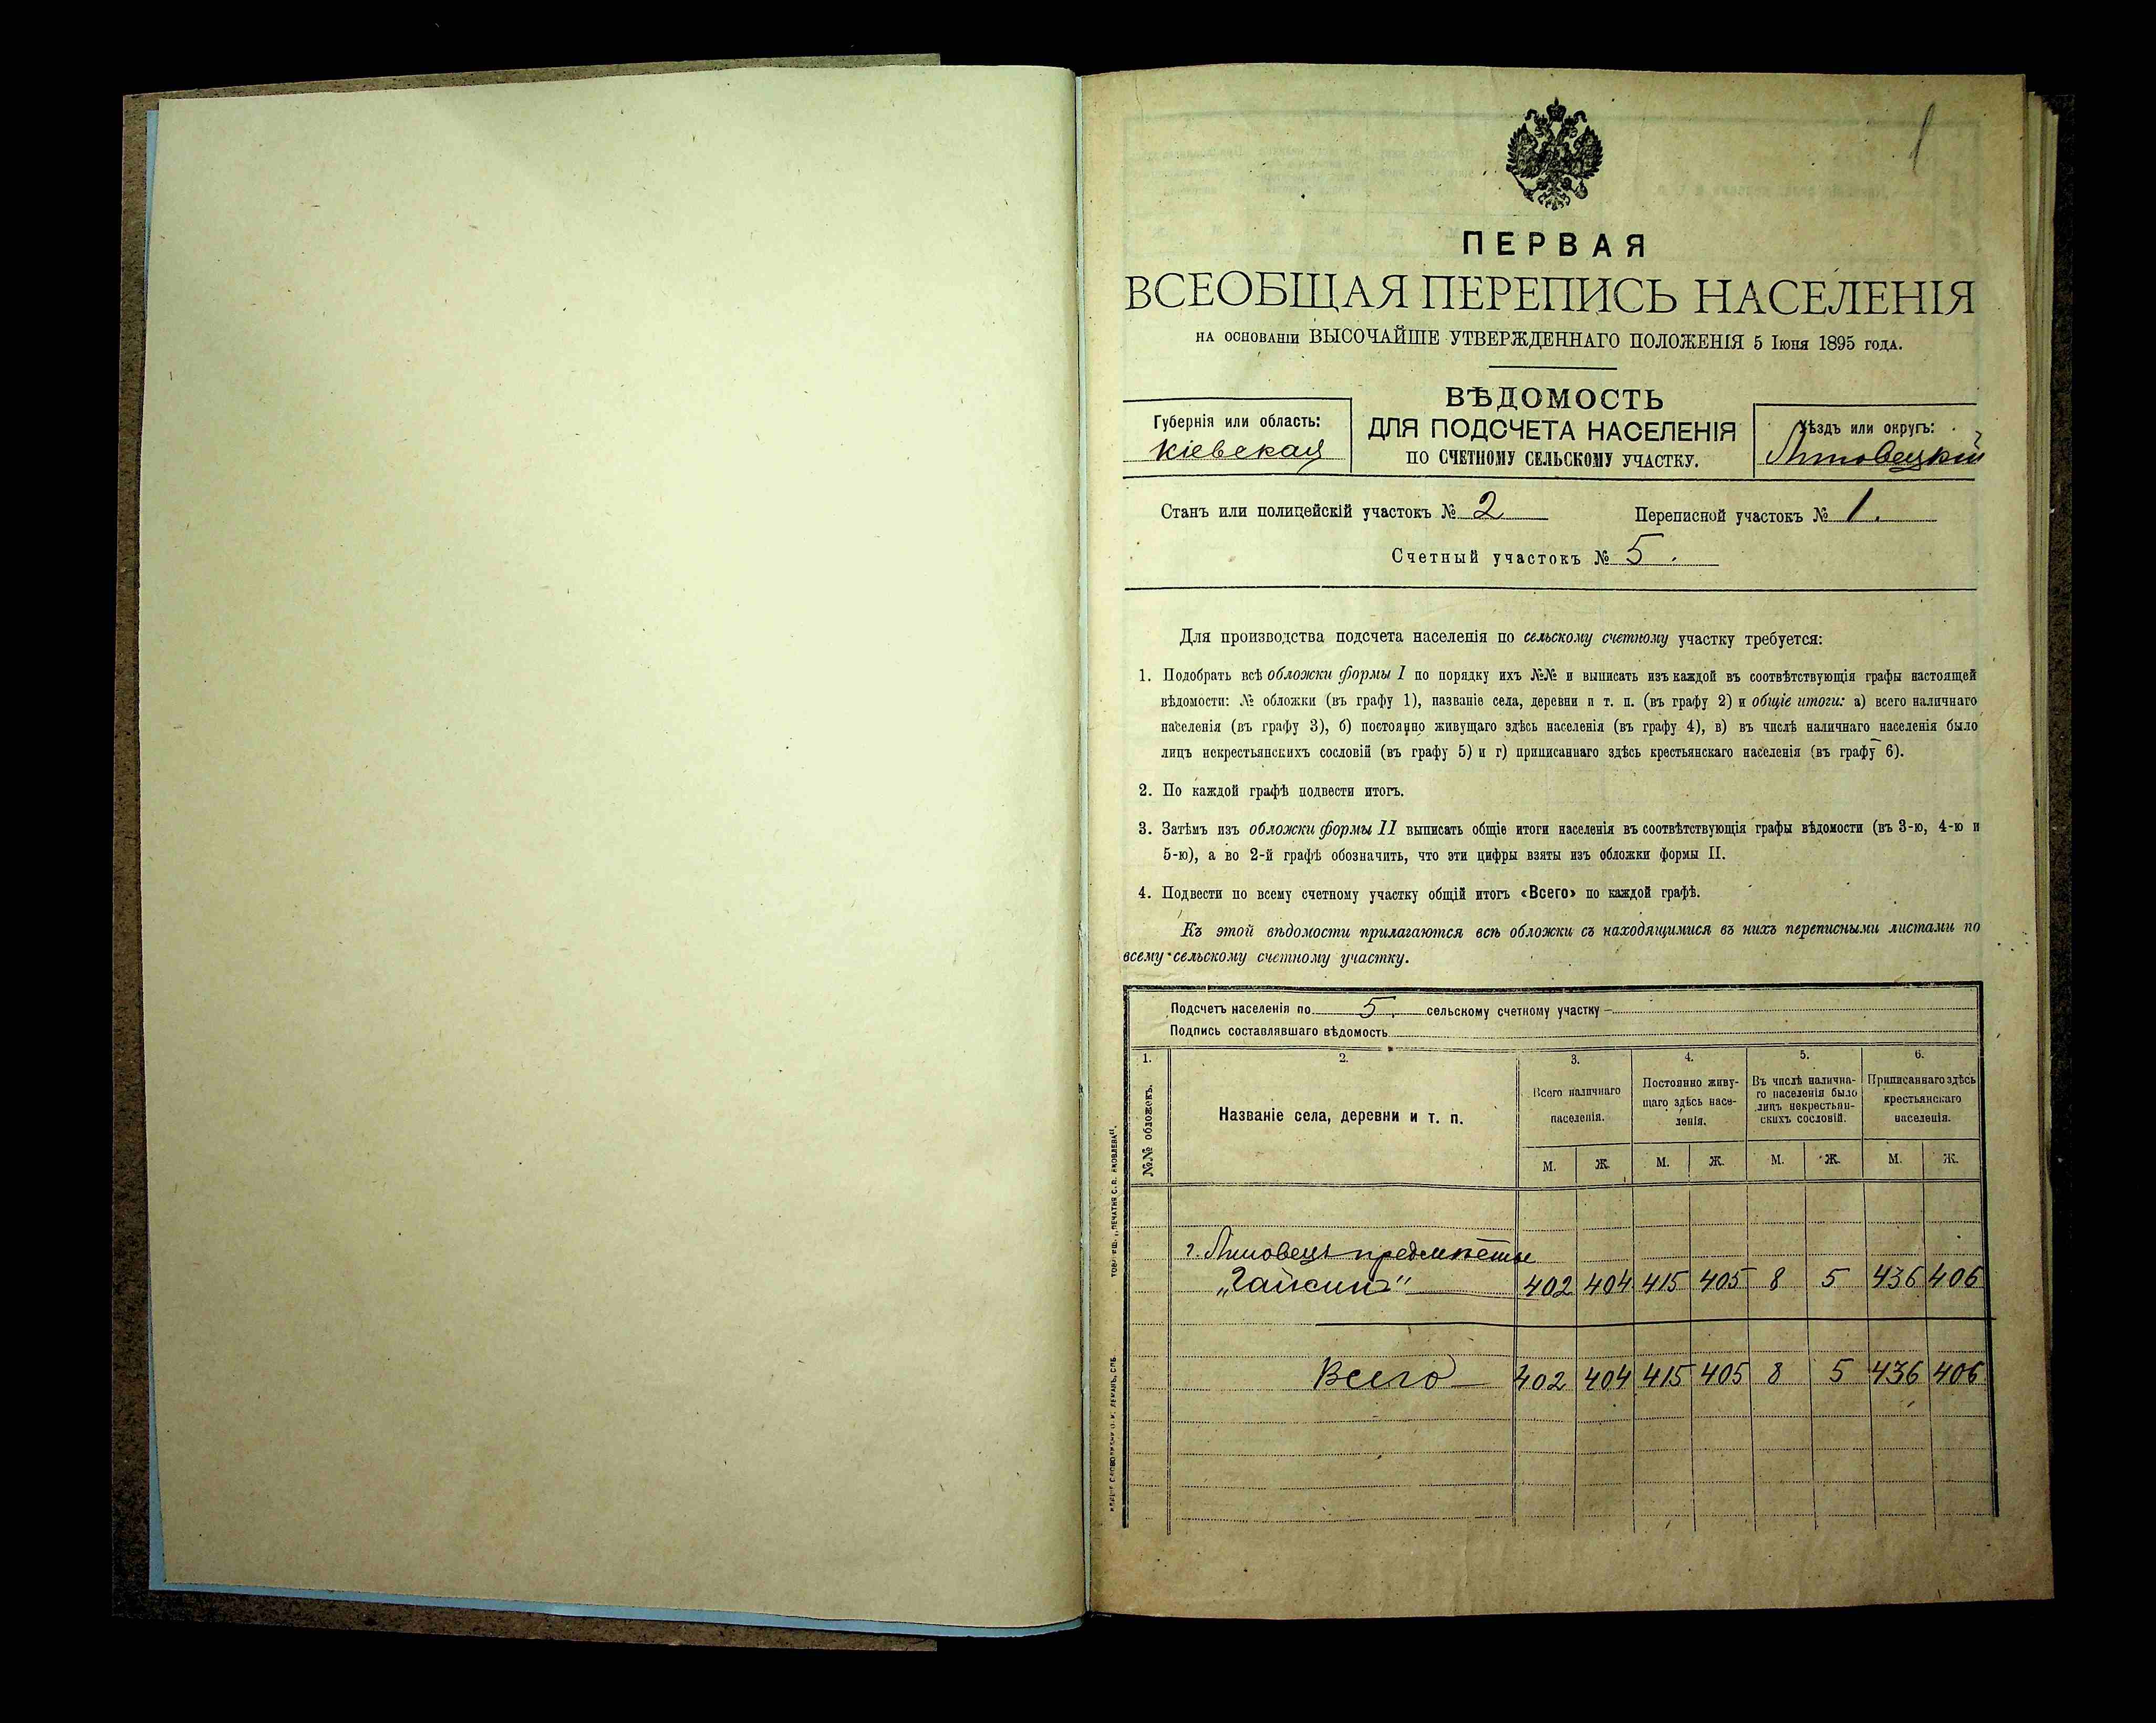 1
ПЕРВАЯ
ВСЕОБЩАЯ ПЕРЕПИСЬ НАСЕЛЕНІЯ
НА ОСНОВАНІИ ВЫСОЧАЙШЕ УТВЕРЖДЕННАГО ПОЛОЖЕНІЯ 5 Іюня 1895 ГОДА.
ВѢДОМОСТЬ
ДЛЯ ПОДСЧЕТА НАСЕЛЕНІЯ
ПО СЧЕТНОМУ СЕЛЬСКОМУ УЧАСТКУ.
Губернія или область:
Кіевская
Уѣздъ или округъ:
Липовецкій
Станъ или полицейскій участокъ № 2 Переписной участокъ № 1.
Счетный участокъ № 5.
Для производства подсчета населенія по сельскому счетному участку требуется:
1. Подобрать всѣ обложки формы I по порядку ихъ №№ и выписать изъ каждой въ соотвѣтствующія графы настоящей
вѣдомости: № обложки (въ графу 1), названіе села, деревни и т. п. (въ графу 2) и общіе итоги: а) всего наличнаго
населенія (въ графу 3), б) постоянно живущаго здѣсь населенія (въ графу 4), в) въ числѣ наличнаго населенія было
лицъ некрестьянскихъ сословій (въ графу 5) и г) приписаннаго здѣсь крестьянскаго населенія (въ графу 6).
2. По каждой графѣ подвести итогъ.
3. Затѣмъ изъ обложки формы II выписать общіе итоги населенія въ соотвѣтствующія графы вѣдомости (въ 3-ю, 4-ю и
5-ю), а во 2-й графѣ обозначить, что эти цифры взяты изъ обложки формы II.
4. Подвести по всему счетному участку общій итогъ «Всего» по каждой графѣ.
Къ этой вѣдомости прилагаются всѣ обложки съ находящимися въ нихъ переписными листами по
всему сельскому счетному участку.
Подсчетъ населенія по 5. сельскому счетному участку
Подпись составлявшаго вѣдомость
1. 2. 3. 4. 5. 6.
№№ обложекъ.
Названіе села, деревни и т. п.
Всего наличнаго
населенія.
Постоянно живу-
щаго здѣсь насе-
ленія.
Въ числѣ налична-
го населенія было
лицъ некрестьян-
скихъ сословій.
Приписаннаго здѣсь
крестьянскаго
населенія.
М. Ж. М. Ж. М. Ж. М. Ж.
г. Липовецъ предмѣстье
„Гайсинъ" 402 404 415 405 8 5 436 406
Всего 402 404 415 405 8 5 436 406
ПЕЧАТНЯ С. П. ЯКОВЛЕВА".